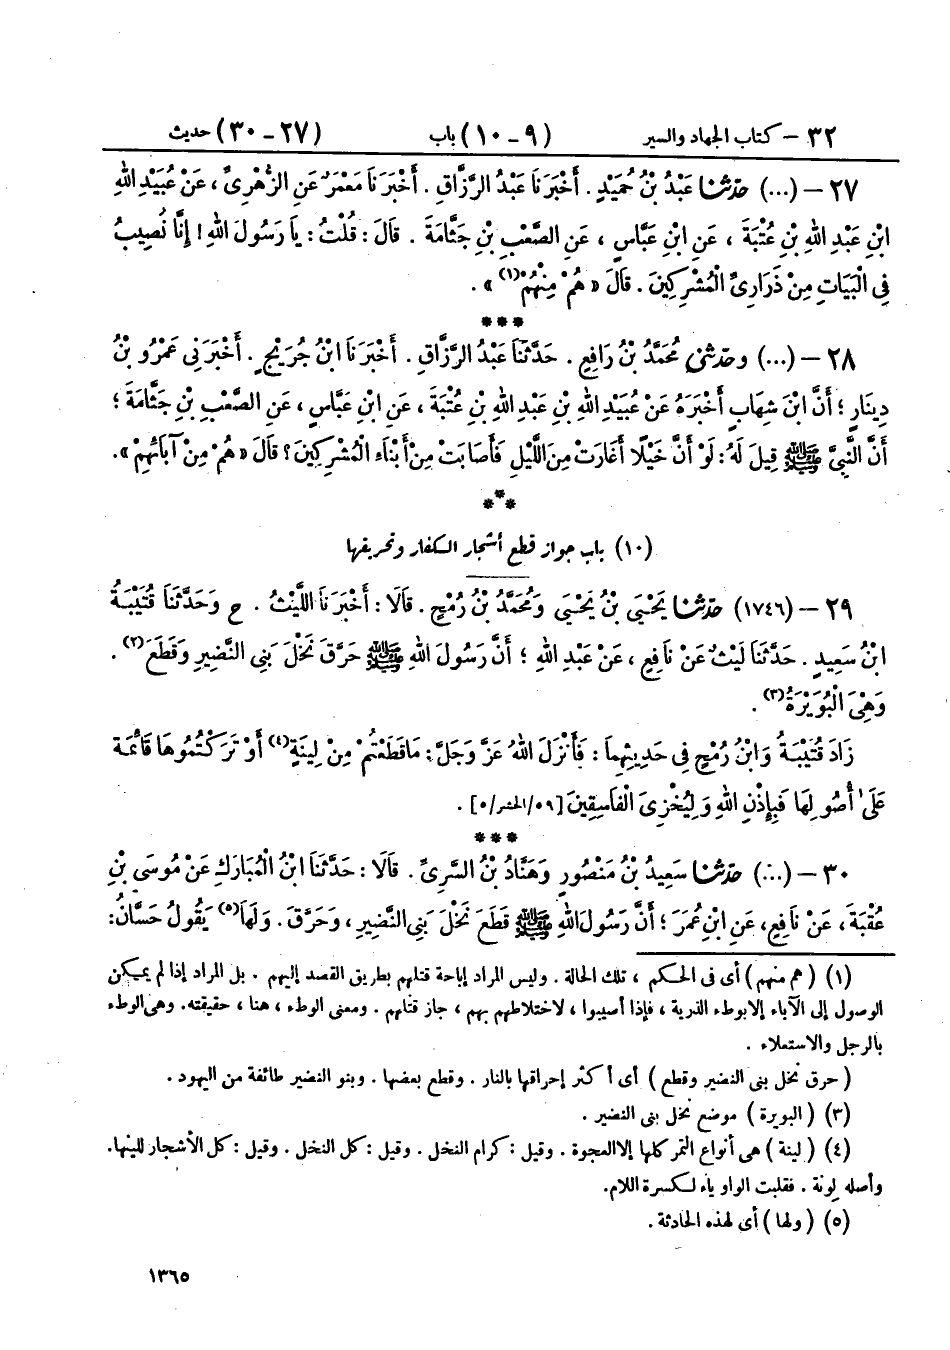 ٣٢ – كتاب الجهاد والسير (٩ – ١٠) باب (٢٧ – ٣٠) حديث
٢٧ – (...) حَدَّثَنَا عَبْدُ بْنُ حُمَيْدٍ . أَخْبَرَنَا عَبْدُ الرَّزَّاقِ . أَخْبَرَنَا مَعْمَرٌ عَنِ الزُّهْرِىِّ ، عَنْ عُبَيْدِ اللهِ
ابْنِ عَبْدِ اللهِ بْنِ عُتْبَةَ ، عَنِ ابْنِ عَبَّاسٍ ، عَنِ الصَّعْبِ بْنِ جَثَّامَةَ . قَالَ : قُلْتُ : يَا رَسُولَ اللهِ ! إِنَّا نُصِيبُ
فِى الْبَيَاتِ مِنْ ذَرَارِىِّ الْمُشْرِكِينَ . قَالَ « هُمْ مِنْهُمْ(١) » .
***
٢٨ – (...) وحَدَّثَنِى مُحَمَّدُ بْنُ رَافِعٍ . حَدَّثَنَا عَبْدُ الرَّزَّاقِ . أَخْبَرَنَا ابْنُ جُرَيْجٍ . أَخْبَرَنِى عَمْرُو بْنُ
دِينَارٍ ؛ أَنَّ ابْنَ شِهَابٍ أَخْبَرَهُ عَنْ عُبَيْدِ اللهِ بْنِ عَبْدِ اللهِ بْنِ عُتْبَةَ ، عَنِ ابْنِ عَبَّاسٍ ، عَنِ الصَّعْبِ بْنِ جَثَّامَةَ ؛
أَنَّ النَّبِىَّ ﷺ قِيلَ لَهُ : لَوْ أَنَّ خَيْلًا أَغَارَتْ مِنَ اللَّيْلِ فَأَصَابَتْ مِنْ أَبْنَاءِ الْمُشْرِكِينَ ؟ قَالَ « هُمْ مِنْ آبَائِهِمْ » .
***
(١٠) باب جواز قطع أشجار الكفار وتحريقها
٢٩ – (١٧٤٦) حَدَّثَنَا يَحْيَى بْنُ يَحْيَى وَمُحَمَّدُ بْنُ رُمْحٍ . قَالَا : أَخْبَرَنَا اللَّيْثُ . ح وَحَدَّثَنَا قُتَيْبَةُ
ابْنُ سَعِيدٍ . حَدَّثَنَا لَيْثٌ عَنْ نَافِعٍ ، عَنْ عَبْدِ اللهِ ؛ أَنَّ رَسُولَ اللهِ ﷺ حَرَّقَ نَخْلَ بَنِى النَّضِيرِ وَقَطَعَ(٢) .
وَهِىَ الْبُوَيْرَةُ(٣) .
زَادَ قُتَيْبَةُ وَابْنُ رُمْحٍ فِى حَدِيثِهِمَا : فَأَنْزَلَ اللهُ عَزَّ وَجَلَّ : مَا قَطَعْتُمْ مِنْ لِينَةٍ(٤) أَوْ تَرَكْتُمُوهَا قَائِمَةً
عَلَى أُصُولِهَا فَبِإِذْنِ اللهِ وَلِيُخْزِىَ الْفَاسِقِينَ [٥٩/الحشر/٥] .
***
٣٠ – (...) حَدَّثَنَا سَعِيدُ بْنُ مَنْصُورٍ وَهَنَّادُ بْنُ السَّرِىِّ . قَالَا : حَدَّثَنَا ابْنُ الْمُبَارَكِ عَنْ مُوسَى بْنِ
عُقْبَةَ ، عَنْ نَافِعٍ ، عَنِ ابْنِ عُمَرَ ؛ أَنَّ رَسُولَ اللهِ ﷺ قَطَعَ نَخْلَ بَنِى النَّضِيرِ ، وَحَرَّقَ . وَلَهَا(٥) يَقُولُ حَسَّانُ :
(١) ( هم منهم ) أى فى الحكم ، تلك الحالة . وليس المراد إباحة قتلهم بطريق القصد إليهم . بل المراد إذا لم يمكن
الوصول إلى الآباء إلا بوطء الذرية ، فإذا أصيبوا ، لاختلاطهم بهم ، جاز قتلهم . ومعنى الوطء ، هنا ، حقيقته . وهى الوطء
بالرجل والاستعلاء .
( حرق نخل بنى النضير وقطع ) أى أكثر إحراقها بالنار . وقطع بعضها . وبنو النضير طائفة من اليهود .
(٣) ( البويرة ) موضع نخل بنى النضير .
(٤) ( لينة ) هى أنواع التمر كلها إلا العجوة . وقيل : كرام النخل . وقيل : كل النخل . وقيل : كل الأشجار للينها .
وأصله لِونة . فقلبت الواو ياء لكسرة اللام .
(٥) ( ولها ) أى لهذه الحادثة .
١٣٦٥